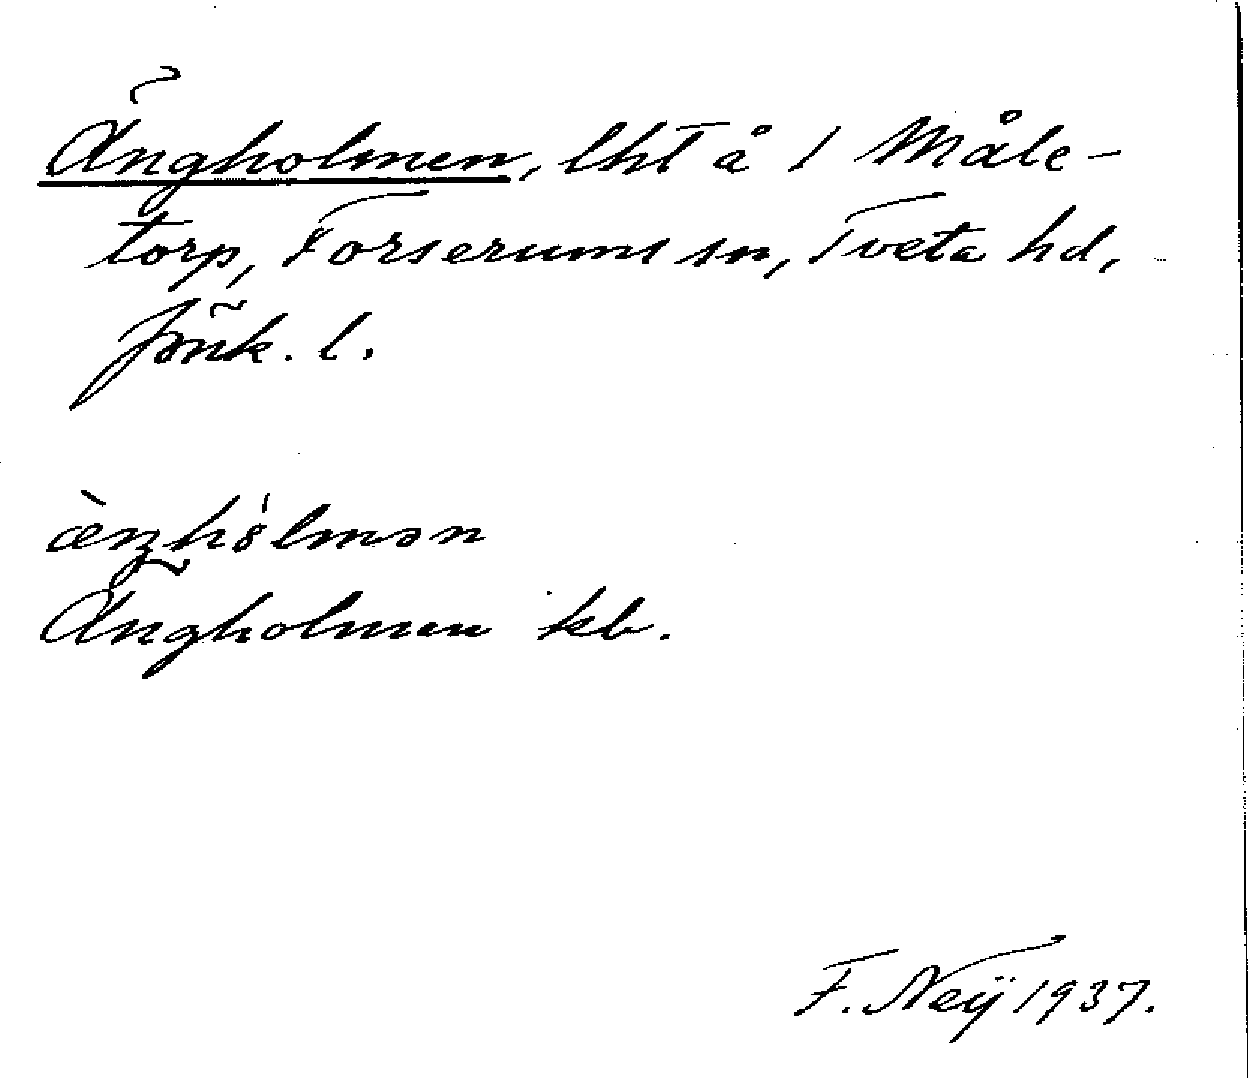 Ängholmen, lht å 1 Måle-
torp, Forserums sn, Tveta hd,
Jönk. l.
Ängholmen kb.
F. Neÿ 1937.